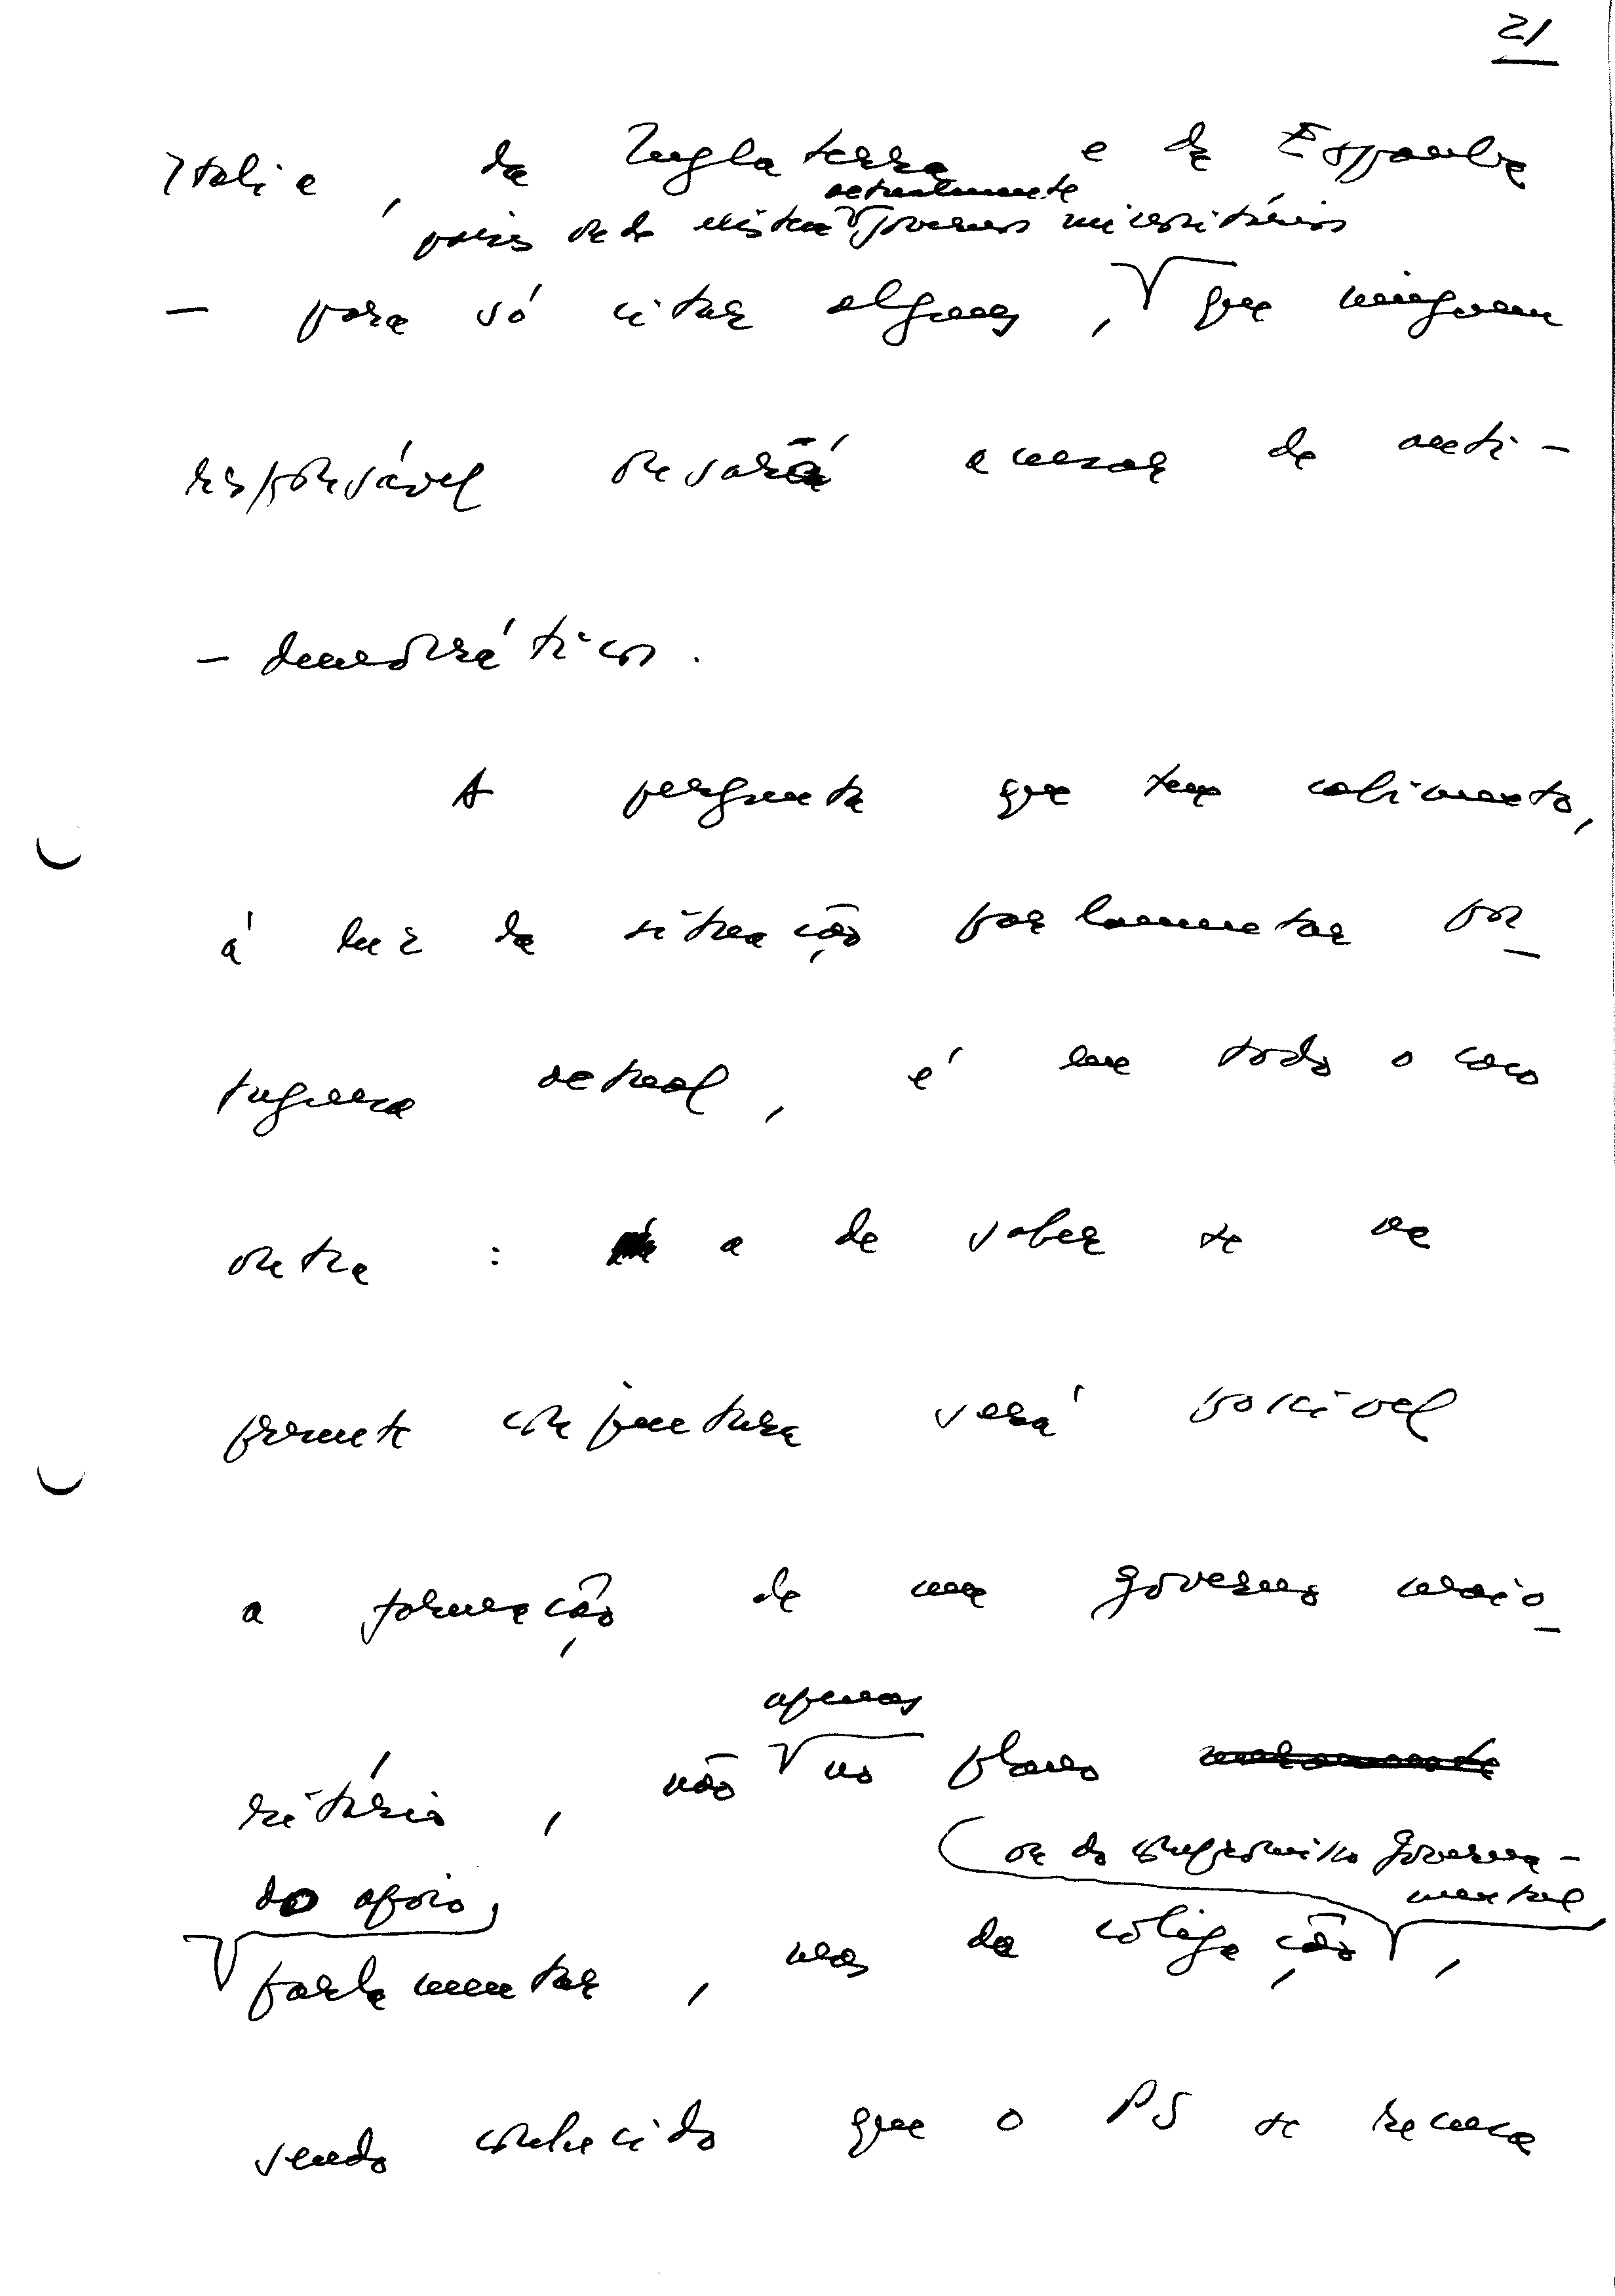 21
Italia, da Inglaterra e da Espanha
actualmente
países onde existem governos minoritários
— para só citar alguns, que ninguem
responsável ousará acusar de anti-
- democráticos.
A pergunta que tem cabimento,
á luz da situação parlamentar por-
tuguesa actual, é em todo o caso
outra : a de saber se na
presente conjuntura será possivel
a formação de um governo maio-
apenas
ritário, não no plano
ou do compromisso governa-
mental
do apoio,
parlamentar, mas da coligação,
sendo conhecido que o PS se recusa